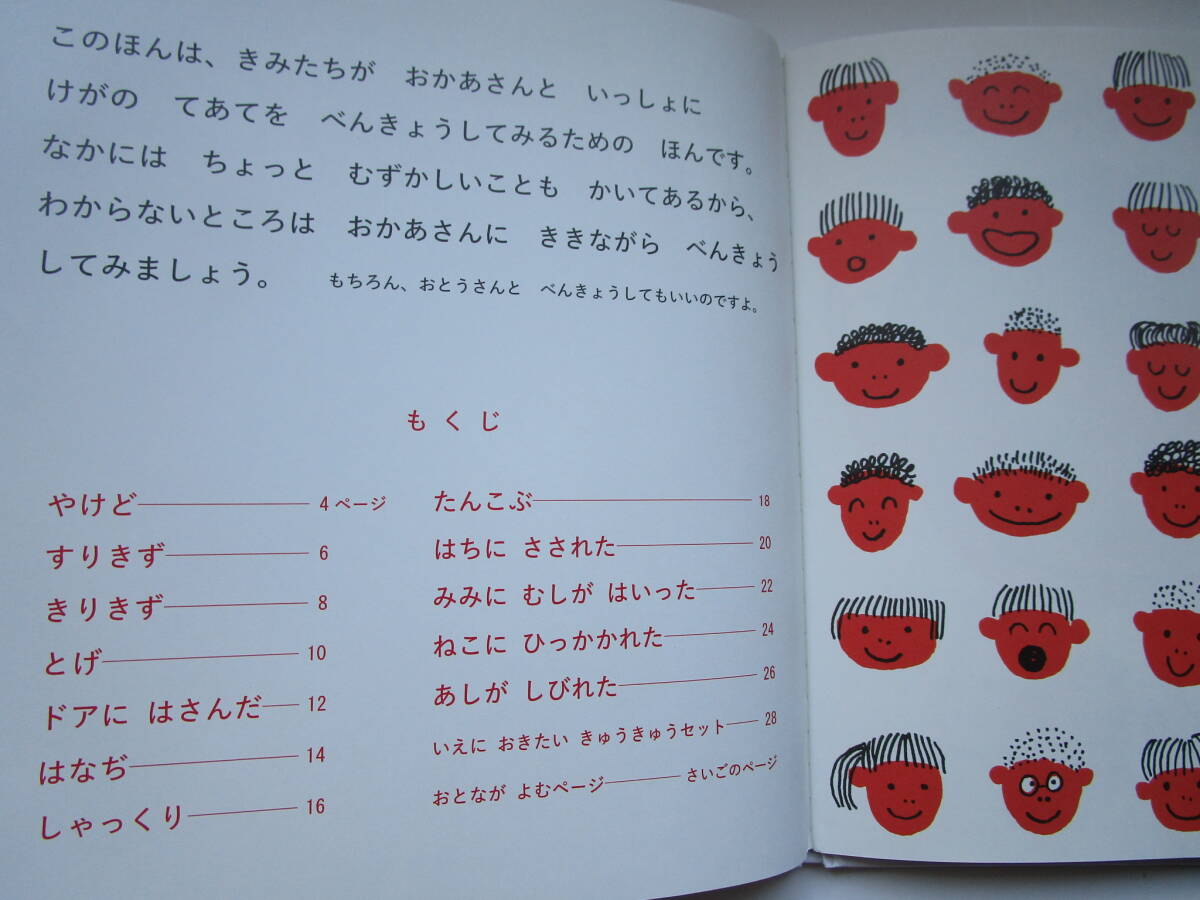 このほんは、きみたちが　おかあさんと　いっしょに
けがの　てあてを　べんきょうしてみるための　ほんです。
なかには　ちょっと　むずかしいことも　かいてあるから、
わからないところは　おかあさんに　ききながら　べんきょう
してみましょう。　もちろん、おとうさんと　べんきょうしてもいいのですよ。
もくじ
やけど 4 ページ
すりきず 6
きりきず 8
とげ 10
ドアに はさんだ 12
はなぢ 14
しゃっくり 16
たんこぶ 18
はちに さされた 20
みみに むしが はいった 22
ねこに ひっかかれた 24
あしが しびれた 26
いえに おきたい きゅうきゅうセット 28
おとなが よむページ さいごのページ